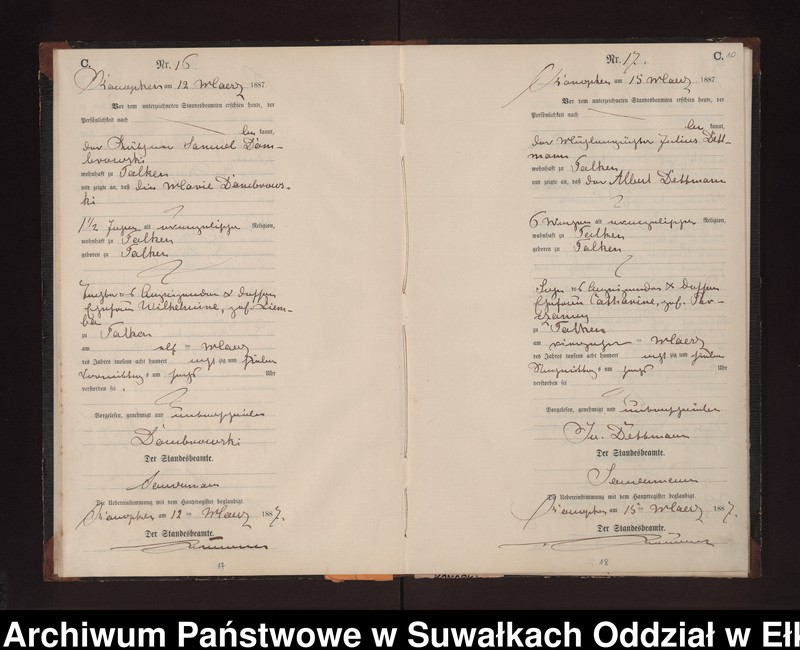 C. Nr. 16
Konopken am 12 März 1887
Vor dem unterzeichneten Standesbeamten erschien heute, der
Persönlichkeit nach
be kannt,
der Samuel Dom-
browski
wohnhaft zu Talken
und zeigte an, daß die Marie Dombrows-
ki
1 1/2 Jahr alt evangelischer Religion,
wohnhaft zu Talken
geboren zu Talken
Tochter des Anzeigenden & dessen
Ehefrau Wilhelmine, geb. Ziem-
ba
zu Talken
am elf ten März
des Jahres tausend acht hundert acht zig und sieben
Vormittags um sechs Uhr
verstorben sei.
Vorgelesen, genehmigt und unterschrieben
Dombrowski
Der Standesbeamte.
Die Uebereinstimmung mit dem Hauptregister beglaubigt.
Konopken am 12 ten März 1887.
Der Standesbeamte.
17
Nr. 17. C. 10
Konopken am 15 März 1887
Vor dem unterzeichneten Standesbeamten erschien heute, der
Persönlichkeit nach
be kannt,
der Julius Dett-
mann
wohnhaft zu Talken
und zeigte an, daß der Albert Dettmann
6 Wochen alt evangelischer Religion,
wohnhaft zu Talken
geboren zu Talken
Sohn des Anzeigenden & dessen
Ehefrau Catharine, geb.
zu Talken
am vierzehn ten März
des Jahres tausend acht hundert acht zig und sieben
Nachmittags um sechs Uhr
verstorben sei
Vorgelesen, genehmigt und unterschrieben
Ju. Dettmann
Der Standesbeamte.
Die Uebereinstimmung mit dem Hauptregister beglaubigt.
Konopken am 15 ten März 1887.
Der Standesbeamte.
18
Archiwum Państwowe w Suwałkach Oddział w Ełk